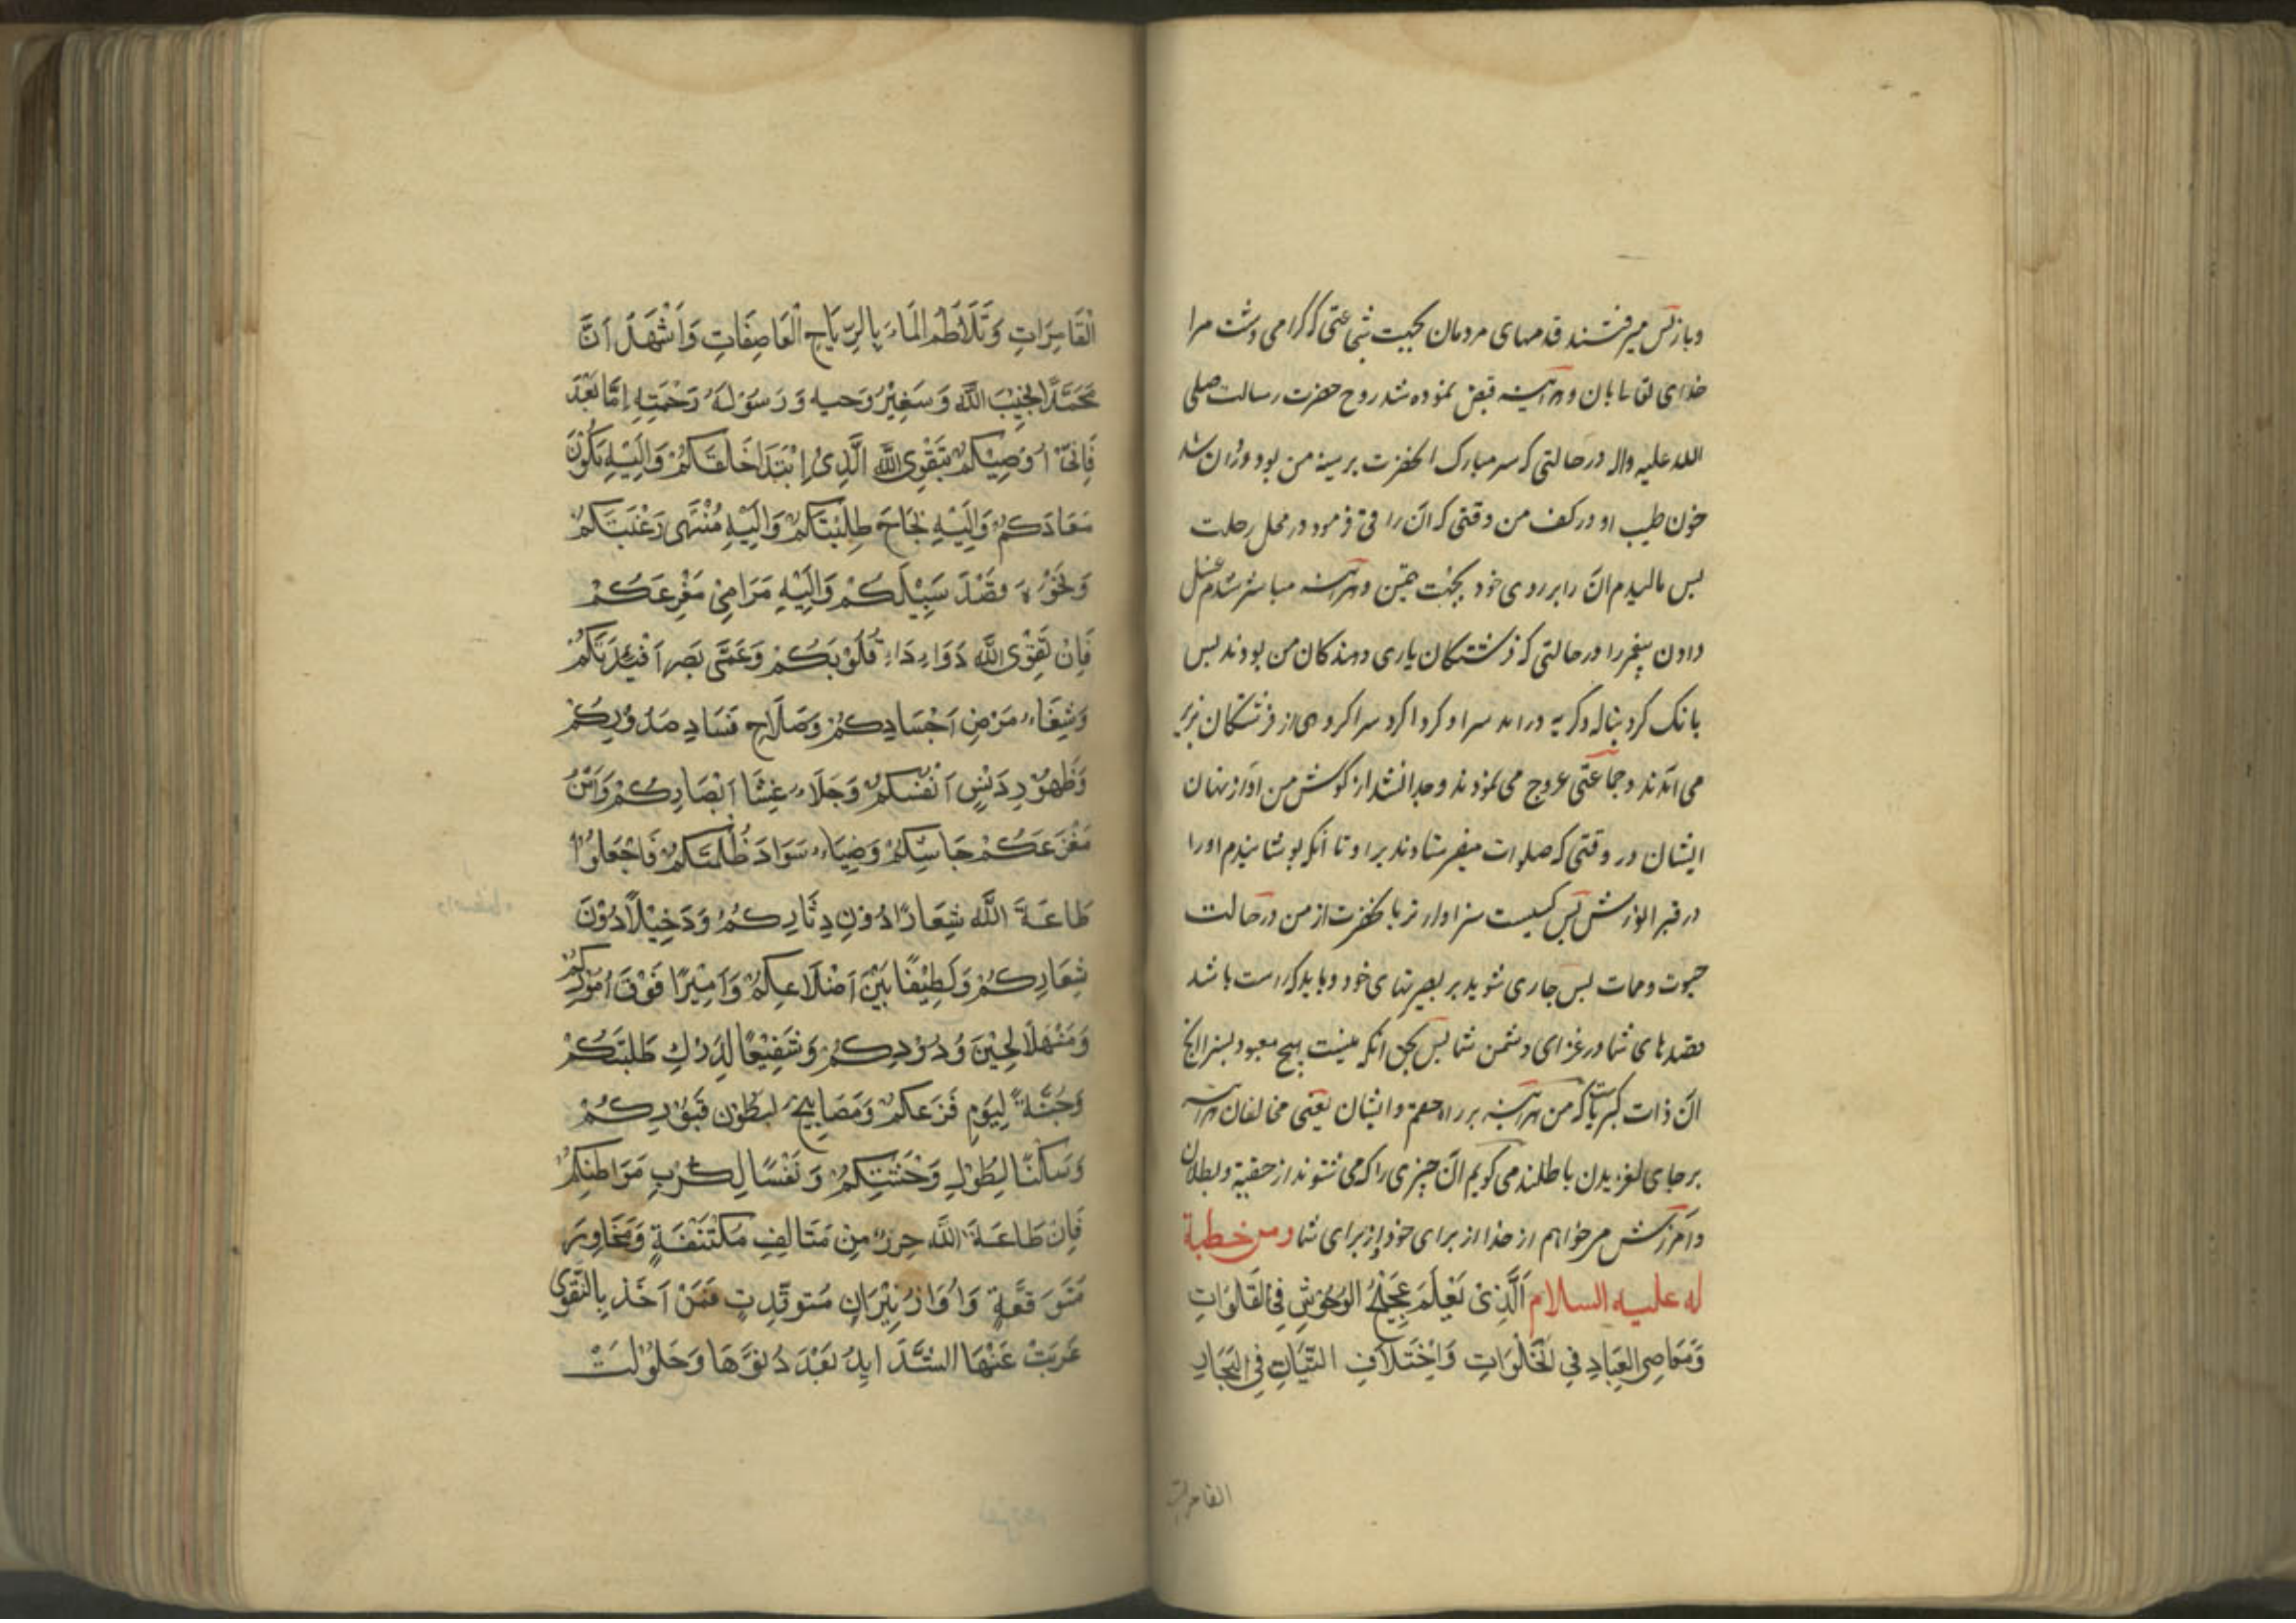 وبازپس میرفتند قدمهای مردمان بجهت شجاعتی که گرامی داشت مرا
خدای تعالی بآن و هرآینه قبض نموده شد روح حضرت رسالت صلی
الله علیه واله در حالتی که سر مبارک آنحضرت بر سینه من بود و روان شد
خون طیب او در کف من وقتی که آن را قی فرمود در محل رحلت
پس مالیدم آن را بر روی خود بجهت تیمن و هرآینه مباشر شدم غسل
دادن پیغمبر را در حالتی که فرشتگان یاری دهندگان من بودند پس
بانک کرد بناله و گریه درامد سرا و کردا کرد سرا گروهی از فرشتگان بزیر
می آمدند و جماعتی عروج می نمودند و جدا نشد از گوش من آواز نهان
ایشان در وقتی که صلوات میفرستادند بر او تا آنکه پوشانیدم او را
در قبر انورش پس کیست سزاوارتر بآنحضرت از من در حالت
حیوت و ممات پس جاری شوید بر بصیرتهای خود و باید که راست باشد
قصدهای شما در غزای دشمن شما پس بحق آنکه نیست هیچ معبود بسزا الا
آن ذات کبریا که من هرآینه بر راه حقم و ایشان یعنی مخالفان هرآینه
بر جای لغزیدن باطلند می گویم آن چیزی را که می شنوند از حقیة و بطلان
و آمرزش میخواهم از خدا از برای خود و از برای شما ومن خطبة
له علیه السلام اَلَّذِی یَعْلَمُ عَجِیْجُ الوُحُوْشِ فِی الفَلَوَاتِ
وَمَعَاصِیَ العِبَادِ فِی الخَلَوَاتِ وَاِخْتَلَافِ النِّیْنَانِ فِی البِحَارِ
القامرات
الْقَامِرَاتِ وَتَلَاطُمَ المَاءِ بِالرِّیَاحِ الْعَاصِفَاتِ وَاَشْهَدُ اَنَّ
مُحَمَّدًا نَجِیْبُ اللّٰهِ وَسَفِیْرُ وَحیِهِ وَرَسُوْلُهُ رَحْمَتِهِ اِمَّا بَعْدَ
فَاِنِّی اُوْصِیْکُمْ بِتَقْوَی اللّٰهِ الَّذِی اِبْتَدَا خَلْقَکُمْ وَاِلَیْهِ یَکُوْنُ
مَعَادَکُمْ وَاِلَیْهِ نَجَاحَ طِلْبَتِکُمْ وَاِلَیْهِ مُنْتَهٰی رَغْبَتِکُمْ
وَنَحْوُهُ قَصْدَ سَبِیْلَکُمْ وَاِلَیْهِ مَرَامِیْ مَفْزَعَکُمْ
فَاِنَّ تَقْوَی اللّٰهِ دَوَاءِ دَاءِ قُلُوْبِکُمْ وَعَمَی بَصَرِ اَفْئِدَتِکُمْ
وَشِفَاءِ مَرَضِ اَجْسَادِکُمْ وَصَلَاحِ فَسَادِ صُدُوْرِکُمْ
وَطَهُوْرِ دَنَسِ اَنْفُسِکُمْ وَجَلَاءِ غِشَا اَبْصَارِکُمْ وَاَمْنُ
مَفْزَعَکُمْ جَاشِکُمْ وَضِیَاءِ سَوَادَ ظُلْمَتِکُمْ فَاجْعَلُوْا
طَاعَةَ اللّٰهِ شِعَارًا دُوْنِ دِثَارِکُمْ وَدَخِیْلًا دُوْنَ
شِعَارِکُمْ وَلَطِیْفًا بَیْنَ اَضْلَاعِکُمْ وَاَمِیْرًا فَوْقَ اُمُوْرِکُمْ
وَمَنْهَلًا لِحِیْنَ وُدُوْدِکُمْ وَشَفِیْعًا لِدَرْكِ طَلِبَتِکُمْ
وَجُنَّةً لِیَوْمِ فَزَعِکُمْ وَمَصَابِیْحَ لِبُطُوْنِ قُبُوْرِکُمْ
وَسَکَنًا لِطُوْلِ وَحْشَتِکُمْ وَنَفْسًا لِکَرْبِ مَوَاطِنِکُمْ
فَاِنَّ طَاعَةَ اللّٰهِ حِرْزٌ مِنْ مَتَالِفِ مُکْتَنِفَةٍ وَمَخَاوِفَ
مُتَوَقَّعَةٍ وَاُوَارُ نِیْرَانِ مُسْتَوقِدٍ فَمَنْ اَخَذَ بِالتَّقْوٰی
عَزَبَتْ عَنْهَا الشَّدَایِدُ بَعْدَ دُنُوِّهَا وَحَلُوْلَتْ